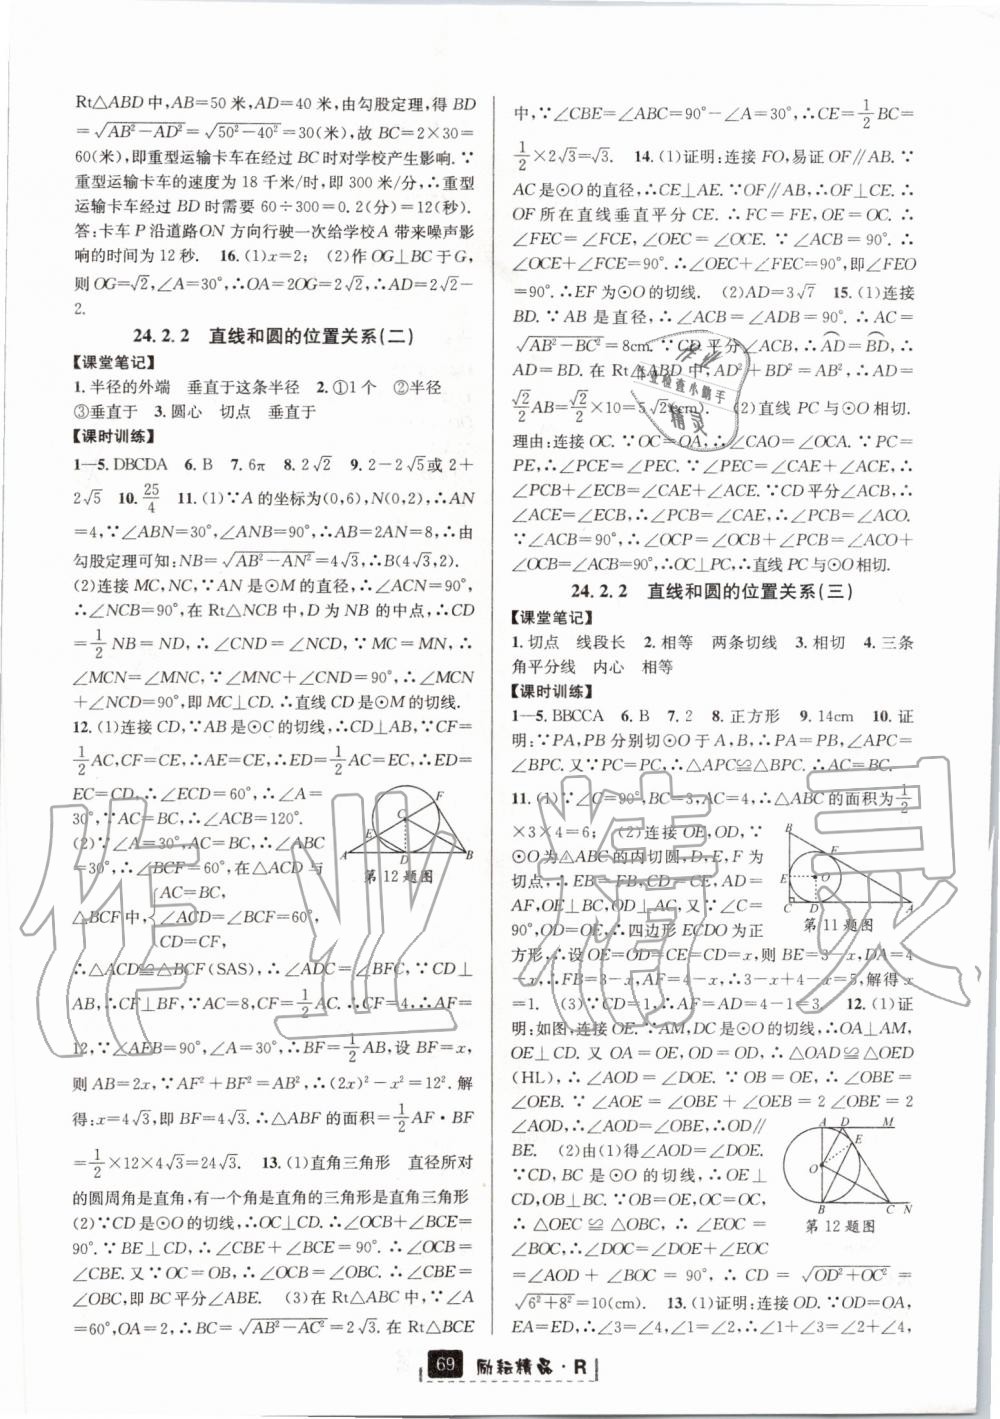 Rt△ABD 中,AB=50 米,AD=40 米,由勾股定理,得 BD
=√(AB²-AD²)=√(50²-40²)=30(米),故 BC=2×30=
60(米),即重型运输卡车在经过 BC 时对学校产生影响.∵
重型运输卡车的速度为 18 千米/时,即 300 米/分,∴重型
运输卡车经过 BD 时需要 60÷300=0.2(分)=12(秒).
答:卡车 P 沿道路ON 方向行驶一次给学校A 带来噪声影
响的时间为 12 秒. 16. (1)x=2; (2)作 OG⊥BC 于 G,
则 OG=√2,∠A=30°,∴OA=2OG=2√2,∴AD=2√2-
2.
24.2.2 直线和圆的位置关系(二)
【课堂笔记】
1. 半径的外端 垂直于这条半径 2. ①1 个 ②半径
③垂直于 3. 圆心 切点 垂直于
【课时训练】
1—5. DBCDA 6. B 7. 6π 8. 2√2 9. 2-2√5或 2+
2√5 10. 25/4 11. (1)∵A 的坐标为(0,6),N(0,2),∴AN
=4,∵∠ABN=30°,∠ANB=90°,∴AB=2AN=8,∴由
勾股定理可知:NB=√(AB²-AN²)=4√3,∴B(4√3,2).
(2)连接 MC,NC,∵AN 是⊙M 的直径,∴∠ACN=90°,
∴∠NCB=90°,在 Rt△NCB 中,D 为 NB 的中点,∴CD
=1/2 NB=ND,∴∠CND=∠NCD,∵MC=MN,∴
∠MCN=∠MNC,∵∠MNC+∠CND=90°,∴∠MCN
+∠NCD=90°,即 MC⊥CD.∴直线 CD 是⊙M 的切线.
12. (1)连接 CD,∵AB 是⊙C 的切线,∴CD⊥AB,∵CF=
1/2 AC,CF=CE,∴AE=CE,∴ED=1/2 AC=EC,∴ED=
EC=CD,∴∠ECD=60°,∴∠A=
30°,∵AC=BC,∴∠ACB=120°.
(2)∵∠A=30°,AC=BC,∴∠ABC
=30°,∴∠BCF=60°,在△ACD 与
△BCF中,{AC=BC,
∠ACD=∠BCF=60°,
CD=CF,
第 12 题图
∴△ACD≌△BCF(SAS),∴∠ADC=∠BFC,∵CD⊥
AB,∴CF⊥BF,∵AC=8,CF=1/2 AC.∴CF=4,∴AF=
12,∵∠AFB=90°,∠A=30°,∴BF=1/2 AB,设 BF=x,
则 AB=2x,∵AF²+BF²=AB²,∴(2x)²-x²=12². 解
得:x=4√3,即 BF=4√3.∴△ABF 的面积=1/2 AF·BF
=1/2×12×4√3=24√3. 13. (1)直角三角形 直径所对
的圆周角是直角,有一个角是直角的三角形是直角三角形
(2)∵CD 是⊙O 的切线,∴OC⊥CD,∴∠OCB+∠BCE=
90°. ∵BE⊥CD,∴∠CBE+∠BCE=90°. ∴∠OCB=
∠CBE. 又∵OC=OB,∴∠OCB=∠OBC. ∴∠CBE=
∠OBC,即 BC 平分∠ABE. (3)在 Rt△ABC 中,∵∠A
=60°,OA=2,∴BC=√(AB²-AC²)=2√3. 在 Rt△BCE
中,∵∠CBE=∠ABC=90°-∠A=30°,∴CE=1/2 BC=
1/2×2√3=√3. 14. (1)证明:连接 FO,易证 OF∥AB. ∵
AC 是⊙O 的直径,∴CE⊥AE. ∵OF∥AB,∴OF⊥CE. ∴
OF所在直线垂直平分 CE. ∴FC=FE,OE=OC. ∴
∠FEC=∠FCE,∠OEC=∠OCE. ∵∠ACB=90°,∴
∠OCE+∠FCE=90°. ∴∠OEC+∠FEC=90°,即∠FEO
=90°. ∴EF 为⊙O 的切线. (2)AD=3√7 15. (1)连接
BD. ∵AB 是直径,∴∠ACB=∠ADB=90°. ∴AC=
√(AB²-BC²)=8cm. ∵CD 平分∠ACB,∴AD=BD,∴AD
=BD. 在 Rt△ABD 中,AD²+BD²=AB²,∴AD=
√2/2 AB=√2/2×10=5√2(cm). (2)直线 PC 与⊙O 相切.
理由:连接 OC. ∵OC=OA,∴∠CAO=∠OCA. ∵PC=
PE,∴∠PCE=∠PEC. ∵∠PEC=∠CAE+∠ACE,∴
∠PCB+∠ECB=∠CAE+∠ACE. ∵CD平分∠ACB,∴
∠ACE=∠ECB,∴∠PCB=∠CAE,∴∠PCB=∠ACO.
∵∠ACB=90°,∴∠OCP=∠OCB+∠PCB=∠ACO+
∠OCB=90°,∴OC⊥PC,∴直线 PC 与⊙O 相切.
24.2.2 直线和圆的位置关系(三)
【课堂笔记】
1. 切点 线段长 2. 相等 两条切线 3. 相切 4. 三条
角平分线 内心 相等
【课时训练】
1—5. BBCCA 6. B 7. 2 8. 正方形 9. 14cm 10. 证
明:∵PA,PB 分别切⊙O 于 A,B,∴PA=PB,∠APC=
∠BPC. 又∵PC=PC,∴△APC≌△BPC. ∴AC=BC.
11. (1)∵∠C=90°,BC=3,AC=4,∴△ABC 的面积为1/2
×3×4=6; (2)连接 OE,OD,∵
⊙O为△ABC 的内切圆,D,E,F 为
切点,∴EB=FB,CD=CE,AD=
AF,OE⊥BC,OD⊥AC,又∵∠C=
90°,OD=OE,∴四边形 ECDO 为正
方形,∴设 OE=OD=CE=CD=x,则 BE=3-x,DA=4
-x,∴FB=3-x,AF=4-x,∴3-x+4-x=5,解得 x
=1. (3)∵CD=1,∴AF=AD=4-1=3. 12. (1)证
第 11 题图
明:如图,连接 OE. ∵AM,DC 是⊙O 的切线,∴OA⊥AM,
OE⊥CD. 又 OA=OE,OD=OD,∴△OAD≌△OED
(HL),∴∠AOD=∠DOE. ∵OB=OE,∴∠OBE=
∠OEB. ∵∠AOE=∠OBE+∠OEB=2∠OBE=2
∠AOD,∴∠AOD=∠OBE,∴OD∥
BE. (2)由(1)得∠AOD=∠DOE.
∵CD,BC 是⊙O 的切线,∴OE⊥CD,
OB⊥BC. ∵OB=OE,OC=OC,
∴△OEC≌△OBC,∴∠EOC=
∠BOC,∴∠DOC=∠DOE+∠EOC
=∠AOD+∠BOC=90°,∴CD=√(OD²+OC²)=
√(6²+8²)=10(cm). 13. (1)证明:连接 OD. ∵OD=OA,
EA=ED,∴∠3=∠4,∠1=∠2,∴∠1+∠3=∠2+∠4,
第 12 题图
69 励耘精品·R